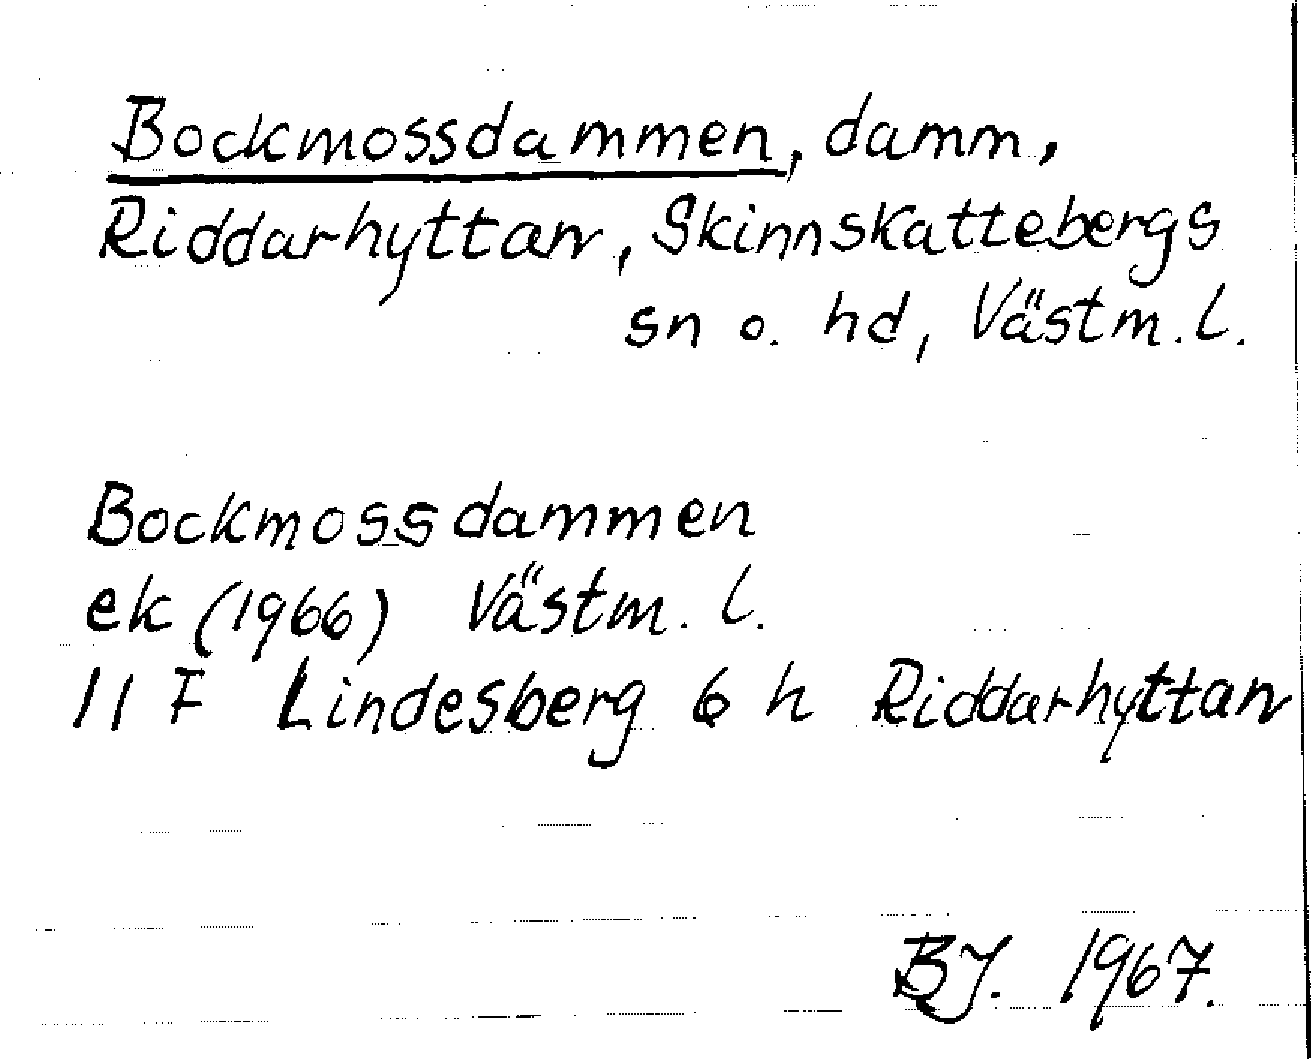 Bockmossdammen, damm,
Riddarhyttan, Skinnskattebergs
sn o. hd, Västm. l.
Bockmossdammen
ek (1966) Västm. l.
11 F Lindesberg 6 h Riddarhyttan
BJ. 1967.